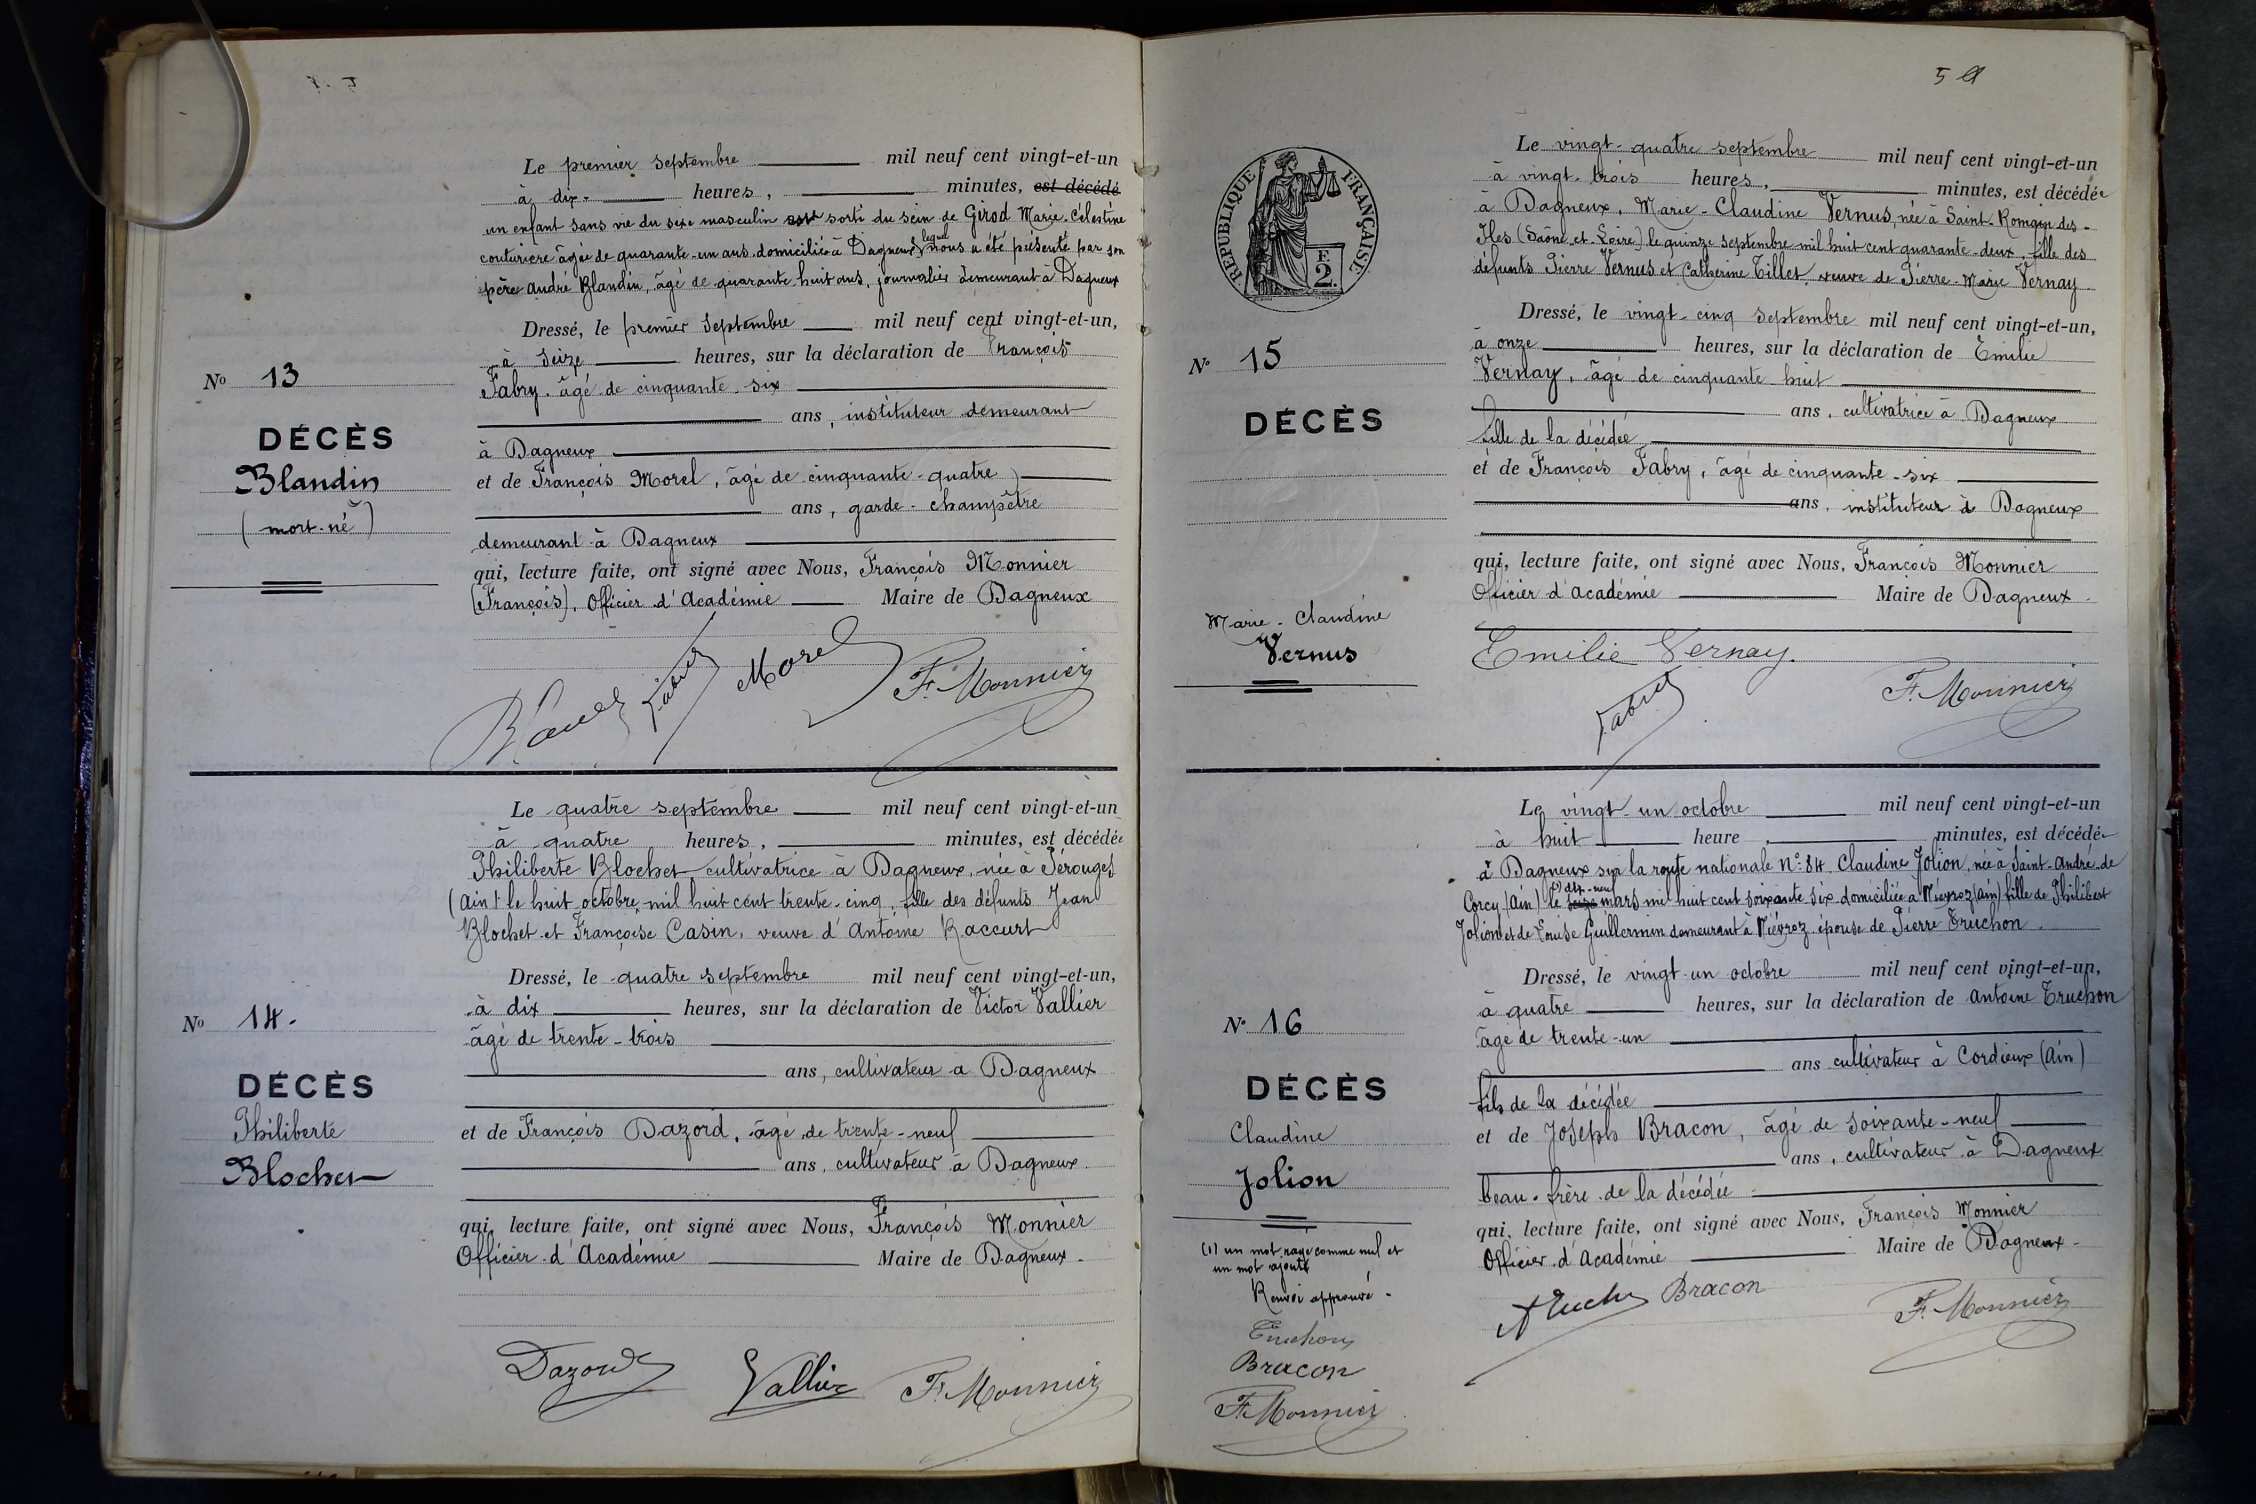 Le premier septembre mil neuf cent vingt-et-un
à dix heures, minutes, est décédé
un enfant sans vie du sexe masculin est sorti du sein de Girod Marie-Célestine
couturière âgée de quarante-un ans domiciliée à Dagneux lequel nous a été présenté par son
père André Blandin, âgé de quarante-huit ans, journalier demeurant à Dagneux
Dressé, le premier septembre mil neuf cent vingt-et-un,
à seize heures, sur la déclaration de François
Fabry, âgé de cinquante-six
ans, instituteur demeurant
à Dagneux
et de François Morel, âgé de cinquante-quatre
ans, garde-champêtre
demeurant à Dagneux
qui, lecture faite, ont signé avec Nous, François Monnier
(François), Officier d'Académie Maire de Dagneux
Fabry Morel F. Monnier
No 13
DÉCÈS
Blandin
(mort-né)
Le quatre septembre mil neuf cent vingt-et-un
à quatre heures, minutes, est décédée
Philiberte Blochet cultivatrice à Dagneux, née à Pérouges
(Ain) le huit octobre mil huit cent trente-cinq, fille des défunts Jean
Blochet et Françoise Casin, veuve d'Antoine Raccurt
Dressé, le quatre septembre mil neuf cent vingt-et-un,
à dix heures, sur la déclaration de Victor Vallier
âgé de trente-trois
ans, cultivateur à Dagneux
et de François Dazord, âgé de trente-neuf
ans, cultivateur à Dagneux.
qui, lecture faite, ont signé avec Nous, François Monnier
Officier d'Académie Maire de Dagneux.
Dazord Vallier F. Monnier
No 14.
DÉCÈS
Philiberte
Blochet
5
RÉPUBLIQUE FRANÇAISE
E
2.
Le vingt-quatre septembre mil neuf cent vingt-et-un
à vingt-trois heures, minutes, est décédée
à Dagneux, Marie-Claudine Vernus, née à Saint-Romain-des-
Iles (Saône-et-Loire) le quinze septembre mil huit cent quarante-deux, fille des
défunts Pierre Vernus et Catherine Tillet, veuve de Pierre-Marie Vernay
Dressé, le vingt-cinq septembre mil neuf cent vingt-et-un,
à onze heures, sur la déclaration de Emilie
Vernay, âgé de cinquante huit
ans, cultivatrice à Dagneux
fille de la décédée
et de François Fabry, âgé de cinquante-six
ans, instituteur à Dagneux
qui, lecture faite, ont signé avec Nous, François Monnier
Officier d'académie Maire de Dagneux.
Emilie Vernay.
Fabry F. Monnier
No 15
DÉCÈS
Marie-Claudine
Vernus
Le vingt-un octobre mil neuf cent vingt-et-un
à huit heure, minutes, est décédée
à Dagneux sur la route nationale No 84 Claudine Jolion, née à Saint-André-de
(1) dix-neuf
Corcy (Ain) le seize mars mil huit cent soixante six domiciliée à Niévroz (Ain) fille de Philibert
Jolion et de Louise Guillermin demeurant à Niévroz, épouse de Pierre Truchon.
Dressé, le vingt-un octobre mil neuf cent vingt-et-un,
à quatre heures, sur la déclaration de Antoine Truchon
âgé de trente-un
ans cultivateur à Cordieux (Ain)
fils de la décédée
et de Joseph Bracon, âgé de soixante-neuf
ans, cultivateur à Dagneux
beau-frère de la décédée
qui, lecture faite, ont signé avec Nous, François Monnier
Officier d'Académie Maire de Dagneux.
Bracon F. Monnier
No 16
DÉCÈS
Claudine
Jolion
(1) un mot rayé comme nul et
un mot ajouté
Renvoi approuvé.
Truchon
Bracon
F. Monnier